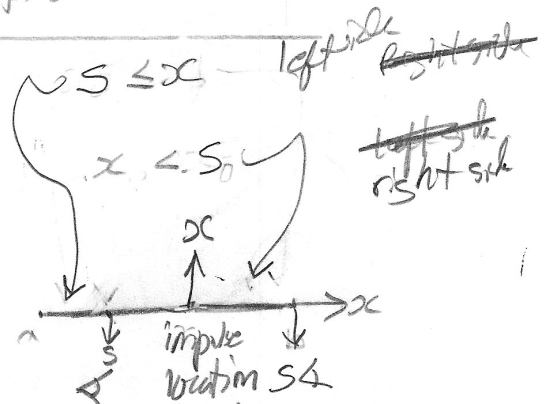 S ≤ x left side right side
x < S left side
right side
x
x
S impulse
location S